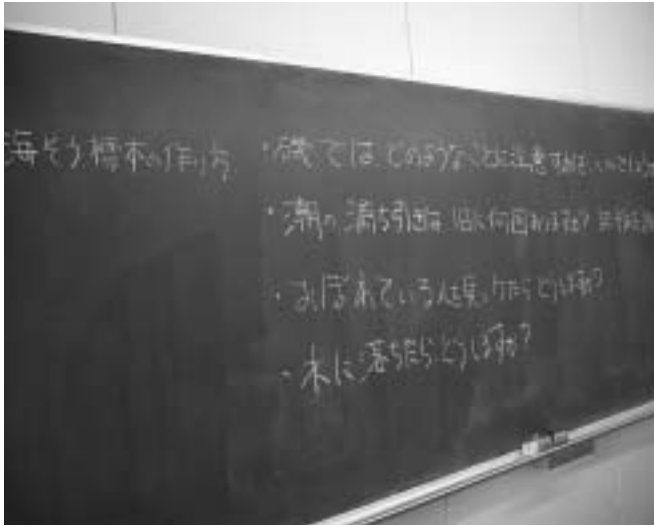 海そう標本の作り方
・磯ではどのようなことに注意すればいいのでしょう
・潮の満ち引きは1日に何回ありますか？
・おぼれている人を見つけたらどうしますか？
・水に落ちたらどうしますか？